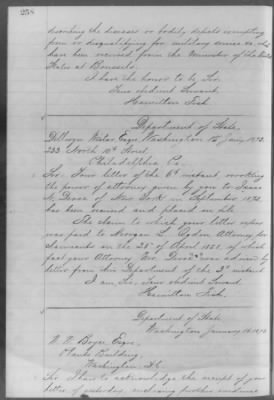 258
describing the diseases or bodily defects exempting
from or disqualifying for military service &c, which
have been received from the Minister of the United
States at Brussels.
I have the honor to be, Sir,
Your obedient Servant
Hamilton Fish
Department of State
Esqre Washington 15 Jany 1873.
233 North 10th Street
Philadelphia Pa.
Sir: Your letter of the 6th instant, revoking
the power of attorney given by you to Isaac
of New York in September 1872,
has been received and placed on file
The claim to which your letter refers
was paid to Morgan L. Ogden Attorney for
claimants on the 28th of April 1851, of which
fact your Attorney Mr. was advised by
letter from this Department of the 3d instant
I am Sir, Your obedient Servant
Hamilton Fish.
Department of State
Washington January 1873
W. W. Boyce Esqre.
Building
Washington D.C.
Sir: I have to acknowledge the receipt of your
letter of yesterday, enclosing further evidence